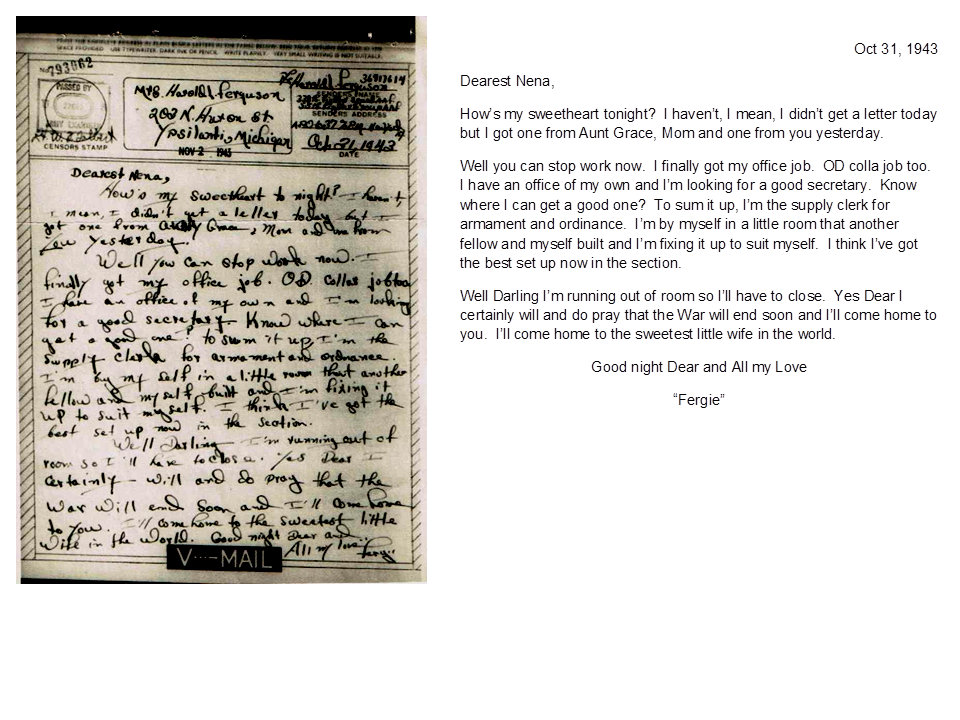 SPACE PROVIDED. USE TYPEWRITER, DARK INK OR PENCIL. WRITE PLAINLY. VERY SMALL WRITING IS NOT SUITABLE.
No. 793962
PASSED BY
CENSORS STAMP
Mrs. Harold Ferguson
202 N. Huron St
Ypsilanti, Michigan
NOV 2 1943
Harold Ferguson
SENDERS NAME
SENDERS ADDRESS
Oct 31, 1943
DATE
Dearest Nena,
How's my sweetheart to night? I haven't
I mean, I didn't get a letter today but I
got one from Grace, Mom and one from
you yesterday.
Well you can stop work now. I
finally got my office job. O.D. collar job too
I have an office of my own and I'm looking
for a good secretary. Know where I can
get a good one? To sum it up, I'm the
supply clerk for armament and ordnance.
I'm by my self in a little room that another
fellow and myself built and I'm fixing it
up to suit myself. I think I've got the
best set up now in the section.
Well Darling I'm running out of
room so I'll have to close. Yes Dear I
certainly – will and do pray that the
War will end soon and I'll come home
to you. I'll come home to the sweetest little
wife in the world. Good night Dear and
All my love Fergie
V···—MAIL
Oct 31, 1943
Dearest Nena,
How's my sweetheart tonight? I haven't, I mean, I didn't get a letter today
but I got one from Aunt Grace, Mom and one from you yesterday.
Well you can stop work now. I finally got my office job. OD colla job too.
I have an office of my own and I'm looking for a good secretary. Know
where I can get a good one? To sum it up, I'm the supply clerk for
armament and ordinance. I'm by myself in a little room that another
fellow and myself built and I'm fixing it up to suit myself. I think I've got
the best set up now in the section.
Well Darling I'm running out of room so I'll have to close. Yes Dear I
certainly will and do pray that the War will end soon and I'll come home to
you. I'll come home to the sweetest little wife in the world.
Good night Dear and All my Love
“Fergie”